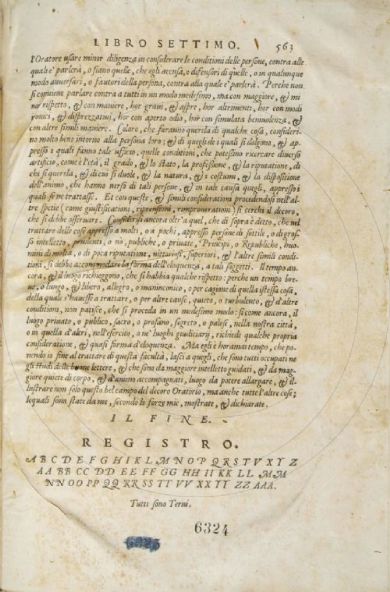 LIBRO SETTIMO. 563
l'Oratore usare minor diligenza in considerare le conditioni delle persone, contra alle
quale e' parlerà, o siano quelle, che egli accusa, o difensori di quelle, o in qualunque
modo auuersari, o fautori della persona, contra alla quale e' parlerà. Perche non
si conuiene parlare contra a tutti in un modo medesimo, ma con maggiore, & mi
nor rispetto, & con maniere, hor graui, & aspre, hor altrimenti, hor con modi
ironici, & disprezzatiui, hor con aperto odio, hor con simulata beniuolenza, &
con altre simili maniere. Coloro, che faranno querela di qualche cosa, consideri-
no molto bene intorno alla persona loro; & di quegli de i quali si dolgono, & ap
presso i quali fanno tale ufficio, quelle conditioni, che potessino ricercare diuerso
artificio, come è l'età, il grado, & lo stato, la professione, & la riputatione, di
chi si querela, & di cui si duole, & la natura, & i costumi, & la dispositione
dell'animo, che hanno uerso di tali persone, & in tale causa quegli, appresso i
quali se ne trattasse. Et con queste, & simili considerationi procedendosi nell'al
tre spetie (come giustificationi, riprensioni, rampognationi) si cerchi il decoro,
che si debbe osseruare. Considerisi ancora oltr'a quel, che di sopra è detto, che nel
trattare delle cose appresso a molti, o a pochi, appresso persone di sottile, o di gros
so intelletto, prudenti, o nò, publiche, o priuate, Principi, o Republiche, huo
mini di molta, o di poca riputatione, uittoriosi, superiori, & l'altre simili condi-
tioni, si debbe accommodare la forma dell'eloquenza, a tali soggetti. Il tempo an
cora, & il luogo richieggono, che si habbia qualche rispetto: perche un tempo bre-
ue, o lungo, & libero, allegro, o maninconico, o per cagione di quella istessa cosa,
della quale s'hauesse a trattare, o per altre cause, quieto, o turbulento, & d'altre
conditioni, non patisce, che si proceda in un medesimo modo: si come ancora, il
luogo priuato, o publico, sacro, o profano, segreto, o palese, nella nostra città,
o in quella d'altri, nell'esercito, o ne' luoghi giudiciarij, richiede qualche propria
consideratione, & quasi forma d'eloquenza. Ma egli è horamai tempo, che po-
nendo io fine al trattare di questa facultà, lasci a quegli, che sono tutti occupati ne
gli studi delle buone lettere, & che sono da maggiore intelletto guidati, & da mag-
giore quiete di corpo, & d'animo accompagnati, luogo da potere allargare, & il-
lustrare non solo questo bel campo del decoro Oratorio, ma anche tutte l'altre cose;
lequali sono state da me, secondo le forze mie, mostrate, & dichiarate.
IL FINE.
REGISTRO.
A B C D E F G H I K L M N O P Q R S T V X Y Z
AA BB CC DD EE FF GG HH II KK LL MM
NN OO PP QQ RR SS TT VV XX YY ZZ AAA.
Tutti sono Terni.
6324